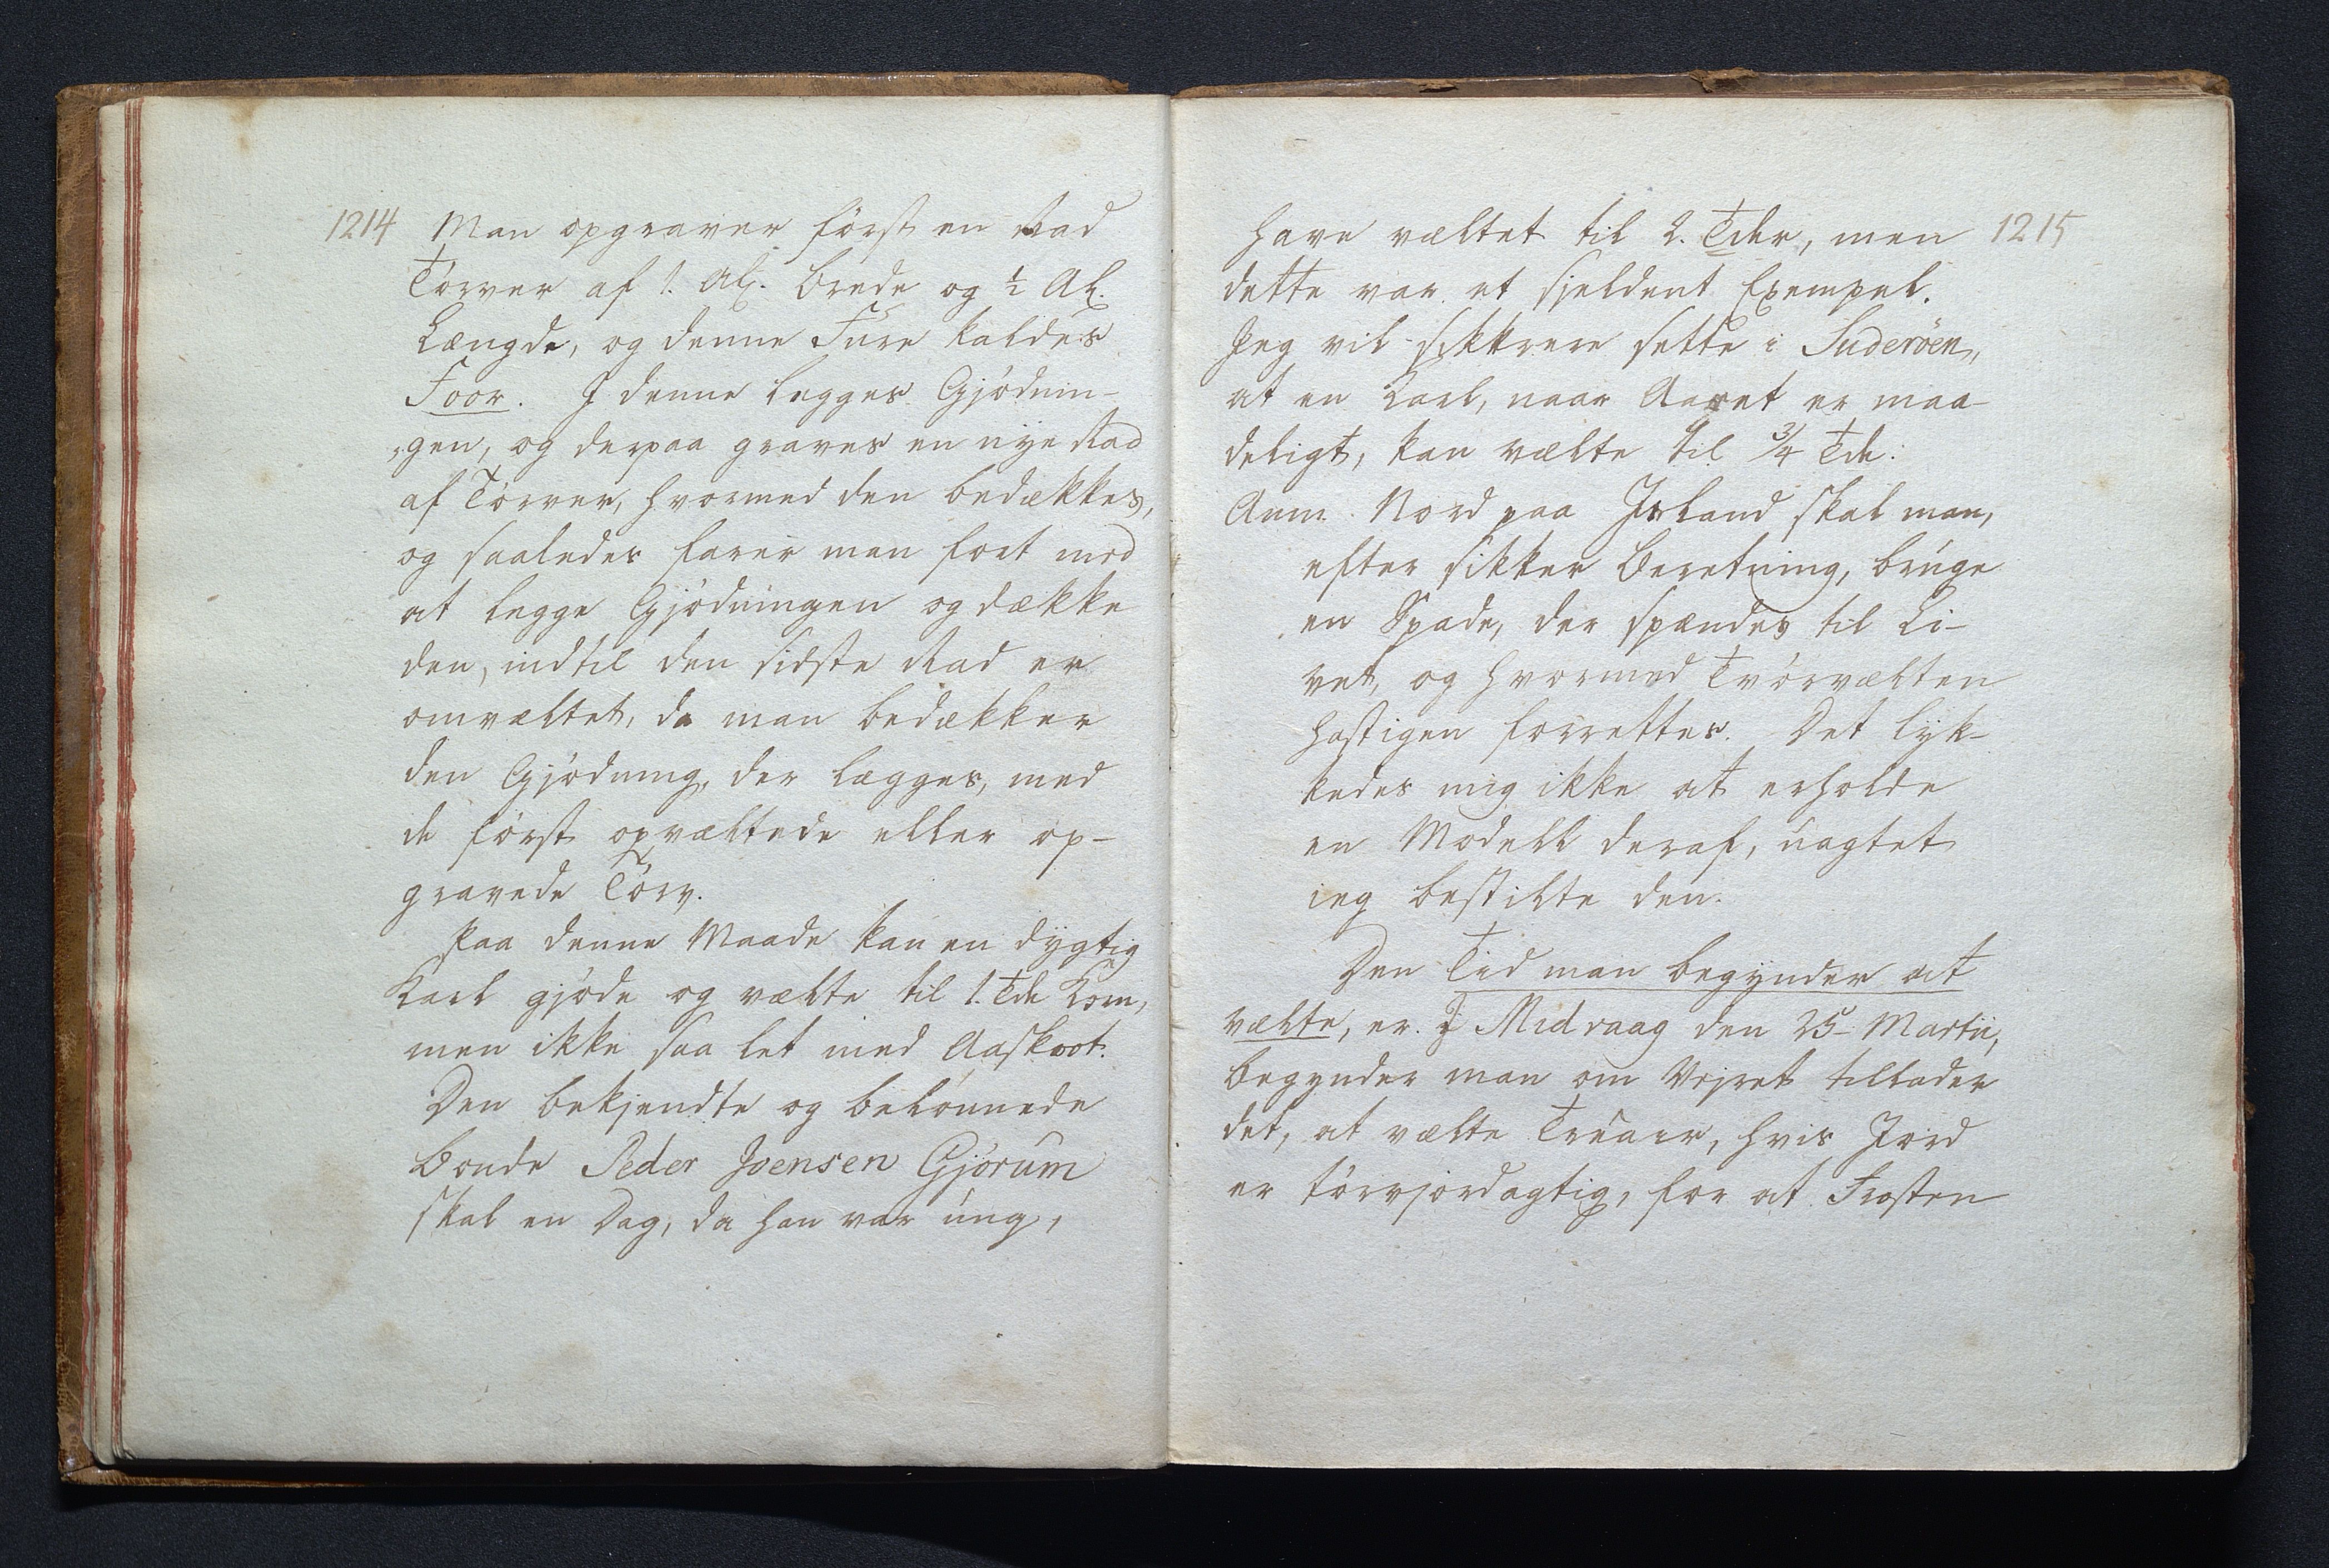 1214 Man opgraver først en Rad
Törver af 1. Al. Brede og ½ Al.
Længde, og denne Fure kaldes
Foor. I denne legges Gjødnin-
gen, og derpaa graves en nye Rad
af Törver, hvormed den bedækkes,
og saaledes farer man fort med
at legge Gjødningen og dække
den, indtil den sidste Rad er
omvæltet, da man bedækker
den Gjødning, der lægges, med
de først opvæltede eller op-
gravede Törv.
Paa denne Maade kan en dygtig
Karl gjøde og vælte til 1. Tde Korn,
men ikke saa let med Aaskoot.
Den bekjendte og belønnede
Bonde Peder Joensen Gjørum
skal en Dag, da han var ung,
have væltet til 2. Tdr, men 1215
dette var et sjeldent Exempel.
Jeg vil sikkrere sette i Suderöen,
at en Karl, naar Aaret er maa-
deligt, kan vælte til ¾ Tde.
Anm. Nord paa Island skal man,
efter sikker Beretning, bruge
en Spade, der spændes til Li-
vet, og hvormed Tvörvælten
hastigen forrettes. Det lyk-
kedes mig ikke at erholde
en Modell deraf, uagtet
ieg bestilte den.
Den Tid man begynder at
vælte, er. I Midvaag den 25- Martii,
begynder man om Vejret tillader
det, at vælte Trüair, hvis Jord
er törvjordagtig, for at Frosten